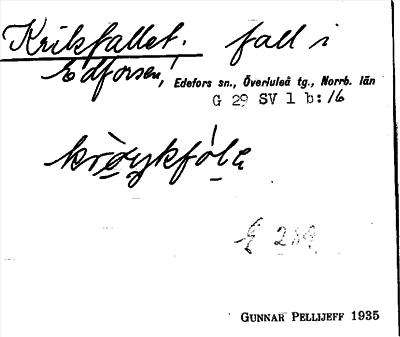 Krikfallet. fall i
Edforsen,
Edefors sn., Överluleå tg., Norrb. län
G 29 SV 1 b:16
GUNNAR PELLIJEFF 1935